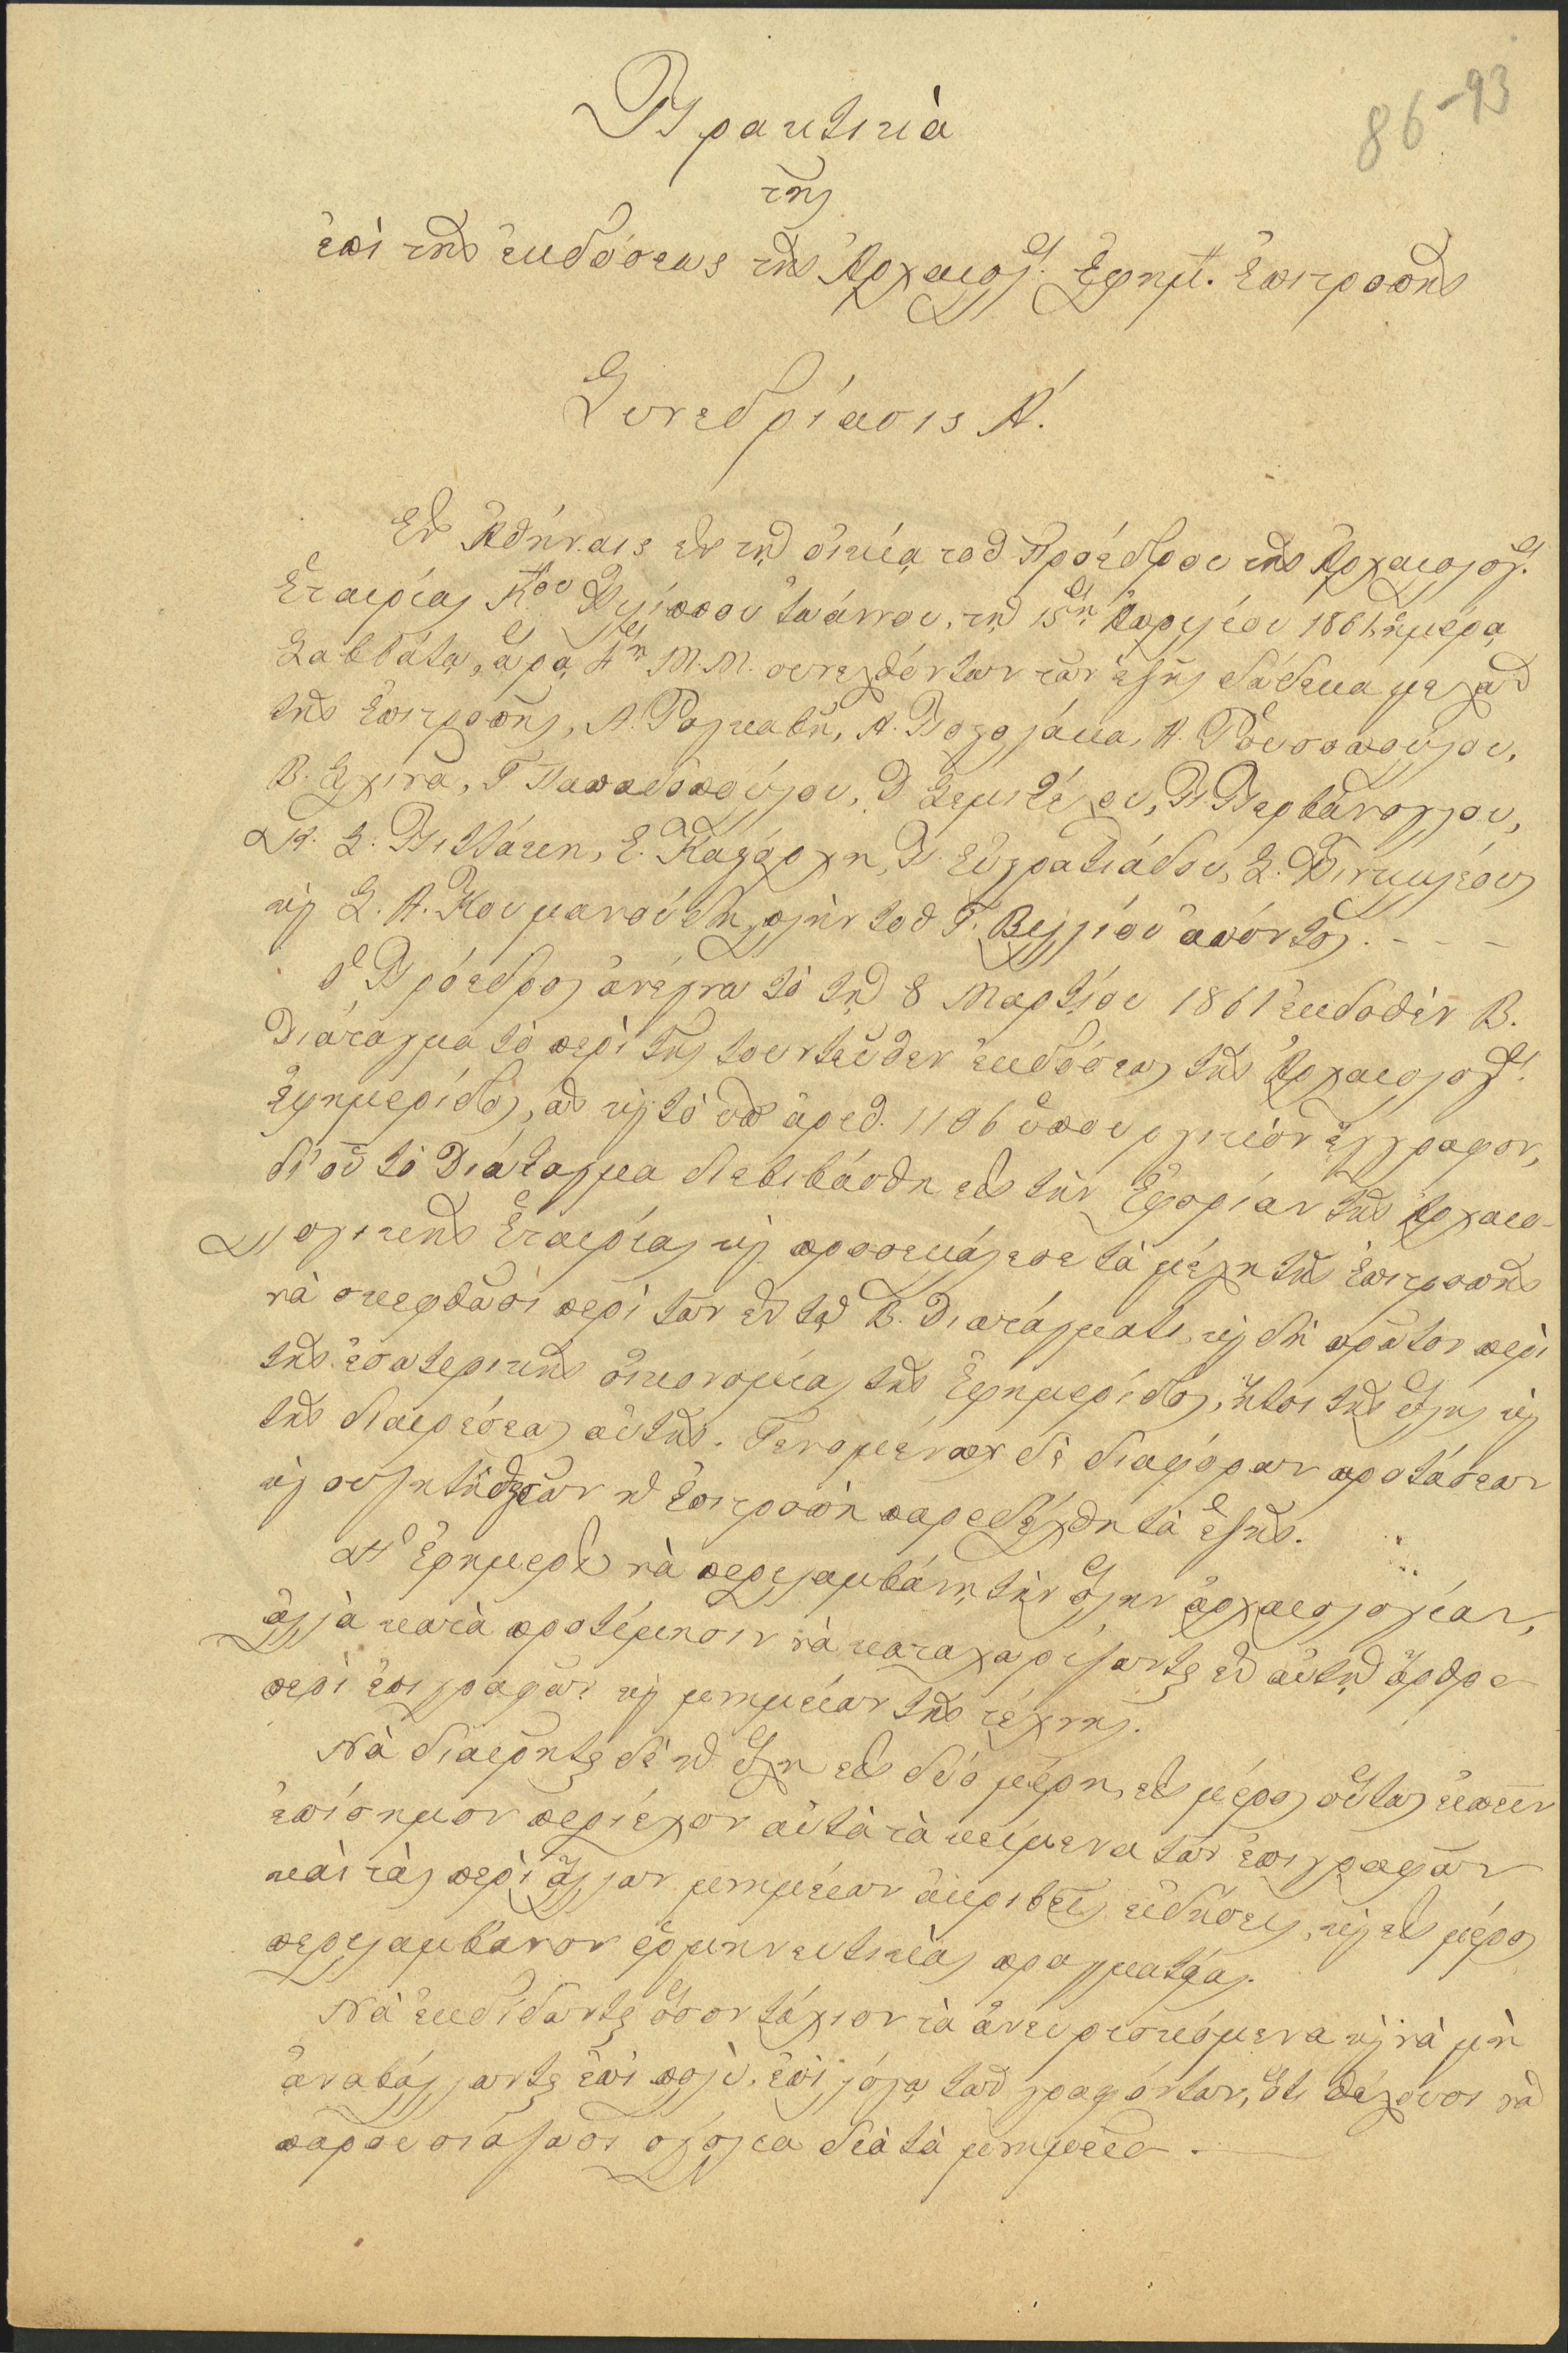 86-93
Πρακτικὰ
τῆς
ἐπὶ τῆς ἐκδόσεως τῆς Ἀρχαιολ. Ἐφημ. Ἐπιτροπῆς
Συνεδρίασις Α΄.
Ἐν Ἀθήναις ἐν τῇ οἰκίᾳ τοῦ Προέδρου τῆς Ἀρχαιολογ.
Ἑταιρίας Κου Φιλίππου Ἰωάννου, τῇ 15ῃ Ἀπριλίου 1861, ἡμέρᾳ
Σαββάτῳ, ὥρᾳ 4ῃ Μ.Μ. συνελθόντων τῶν ἑξῆς δώδεκα μελῶν
τῆς Ἐπιτροπῆς, Α. Ραγκαβῆ, Α. Βλαχ
Α. Ῥουσοπούλου,
Β. Σχινᾶ, Γ Παπαδοπούλου, Δ Σεμιτέλου, Π. Περβάνογλου,
Κ. Σ. Πιττάκη, Ε. Καστόρχη, Π. Εὐστρατιάδου, Σ. Φιντικλέους
κ Σ. Α. Κουμανούδη, πλὴν τοῦ Γ. Βελλίου ἀπόντος. - - -
Ὁ Πρόεδρος ἀνέγνω τὸ τῇ 8 Μαρτίου 1861 ἐκδοθὲν Β.
Διάταγμα τὸ περὶ τῆς τουντεῦθεν ἐκδόσεως τῆς Ἀρχαιολογ.
Ἐφημερίδος, ὡς κ τὸ ὑπ’ ἀριθ. 1106 ὑπουργικὸν ἔγγραφον,
δι’ οὗ τὸ Διάταγμα διεβιβάσθη εἰς τὴν Ἐφορίαν τῆς Ἀρχαιο-
λογικῆς Ἑταιρίας κ προσεκάλεσε τὰ μέλη τῆς Ἐπιτροπῆς
νὰ σκεφθῶσι περὶ τῶν ἐν τῷ Β. Διατάγματι, κ δὴ πρῶτον περὶ
τῆς ἐσωτερικῆς οἰκονομίας τῆς Ἐφημερίδος, ἤτοι τῆς ὕλης κ
τῆς διαιρέσεως αὐτῆς. Γενομένων δὲ διαφόρων προτάσεων
κ συζητήσεων ἡ Ἐπιτροπὴ παρεδέχθη τὰ ἑξῆς.
Ἡ Ἐφημερὶς νὰ περιλαμβάνῃ τὴν ὅλην ἀρχαιολογίαν,
ἀλλὰ κατὰ προτίμησιν νὰ καταχωρίζωνται ἐν αὐτῇ ἄρθρα
περὶ ἐπιγραφῶν κ μνημείων τῆς τέχνης.
Νὰ διαιρῆται δὲ ἡ ὕλη εἰς δύο μέρη, εἰς μέρος οὕτως εἰπεῖν
ἐπίσημον περιέχον αὐτὰ τὰ κείμενα τῶν ἐπιγραφῶν
καὶ τὰς περὶ ἄλλων μνημείων ἀκριβεῖς εἰδήσεις, κ εἰς μέρος
περιλαμβάνον ἑρμηνευτικὰς πραγματείας.
Νὰ ἐκδίδωνται ὅσον τάχιον τὰ ἀνευρισκόμενα κ νὰ μὴ
ἀναβάλλωνται ἐπὶ πολὺ, ἐπὶ λόγῳ τῶν γραφόντων, ὅτι θέλουσι νὰ
παρουσιάζωσι ὁλόγλα διὰ τὰ μνημεῖα.